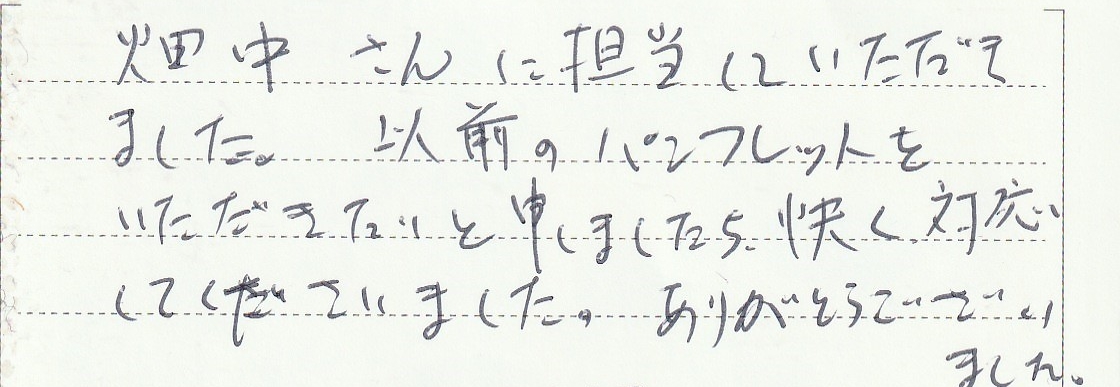 畑中さんに担当していただき
ました。以前のパンフレットを
いただきたいと申しましたら、快く対応
してくださいました。ありがとうござい
ました。